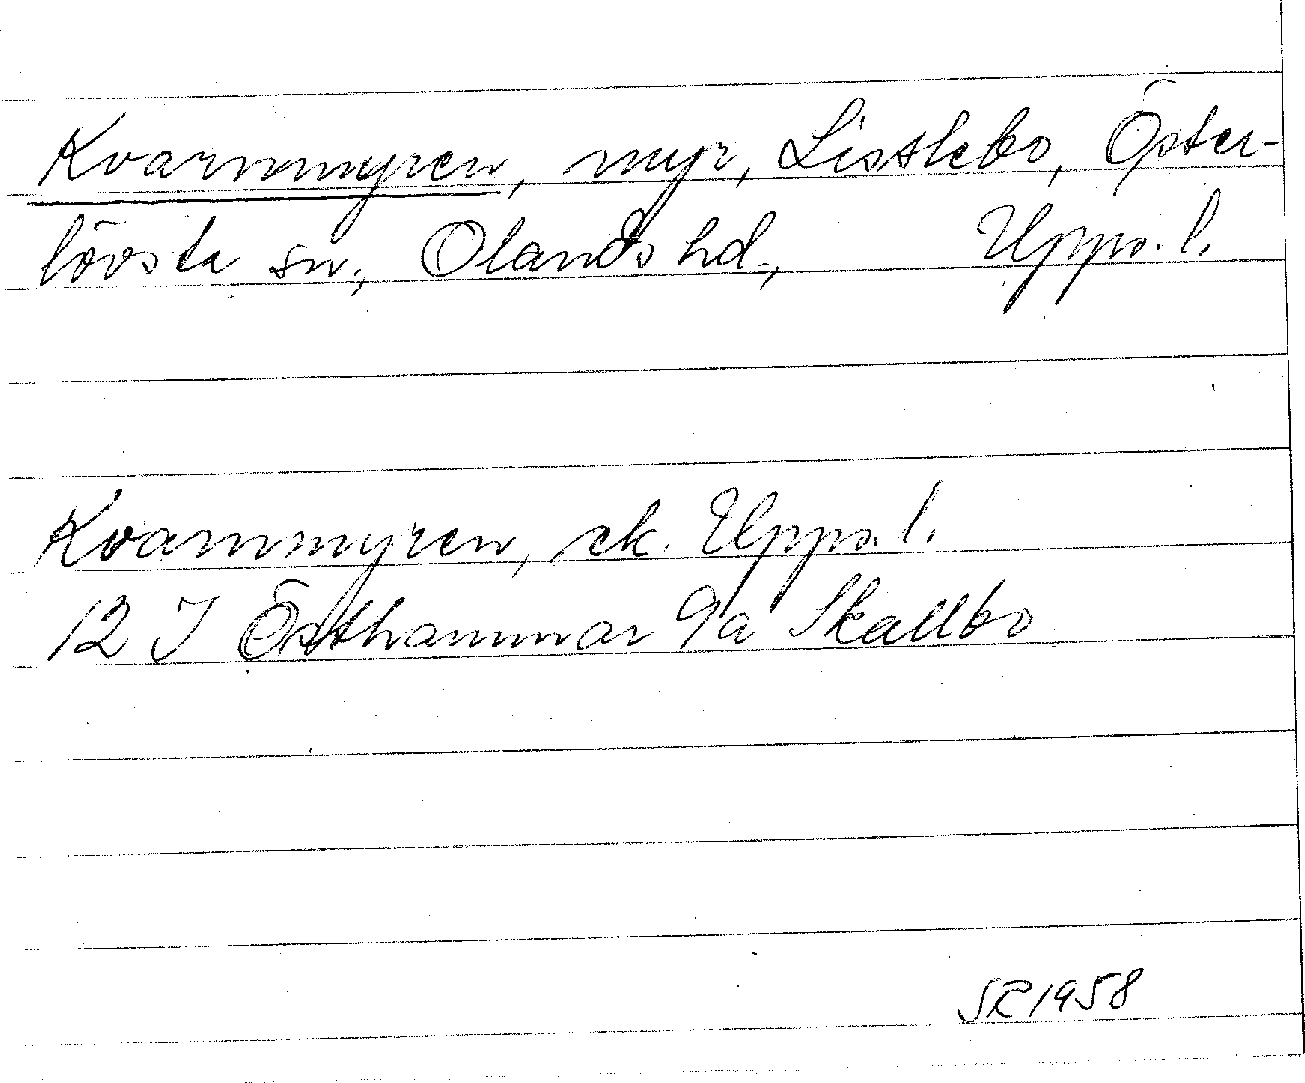 Kvarnmyren, myr, Listlebo, Öster-
lövsta sn., Olands hd., Upps. l.
Kvarnmyren, ek. Upps. l.
12 I Östhammar 9a Skallbo
SR 1958